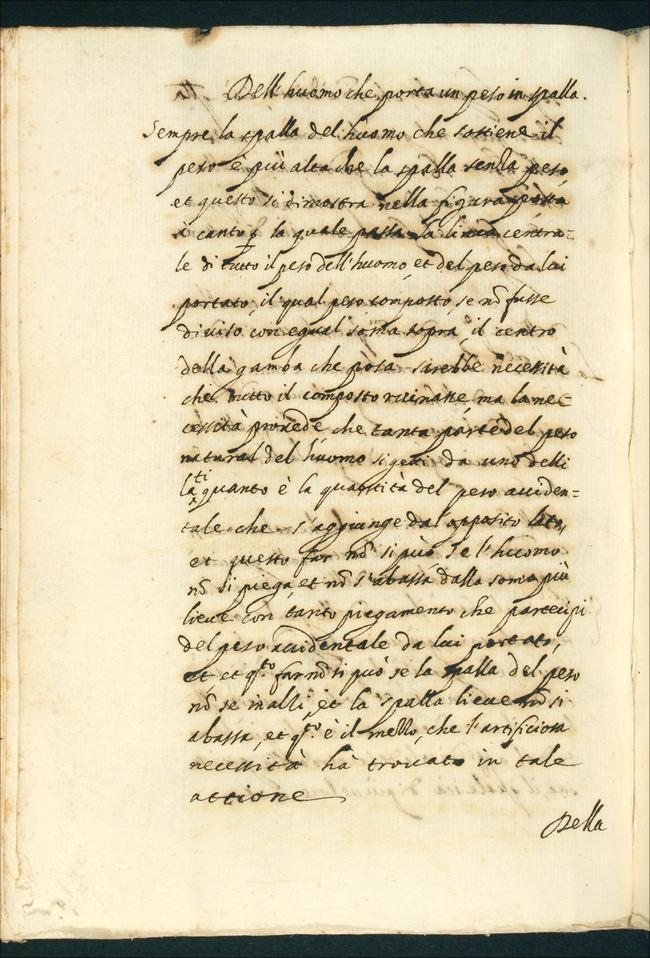 Dell' huomo che porta un peso in spalla.
Sempre la spalla del huomo che sostiene il
peso è più alta che la spalla senza peso,
et questo si dimostra nella figura posta
à canto la quale passa la linea centra=
le di tutto il peso dell' huomo, et del peso da lui
portato, il qual peso composto, se nō fusse
diviso con egual soma sopra, il centro
della gamba che posa sarebbe necessità
che tutto il composto ruinasse, ma la ne=
cessità provede che tanta parte del peso
natural del huomo si getti da uno delli
lati quanto è la quantità del peso acciden=
tale che s'aggiunge dal opposito lato,
et questo far nō si può se l'huomo
nō si piega, et nō s'abassa dalla soma più
lieve con tanto piegamento che partecipi
del peso accidentale da lui portato,
et et q.to far nō si può se la spalla del peso
nō se inalzi, et la spalla lieve nō si
abassa, et q.to è il mezzo, che l'artificiosa
necessità hà trovato in tale
attione
Della